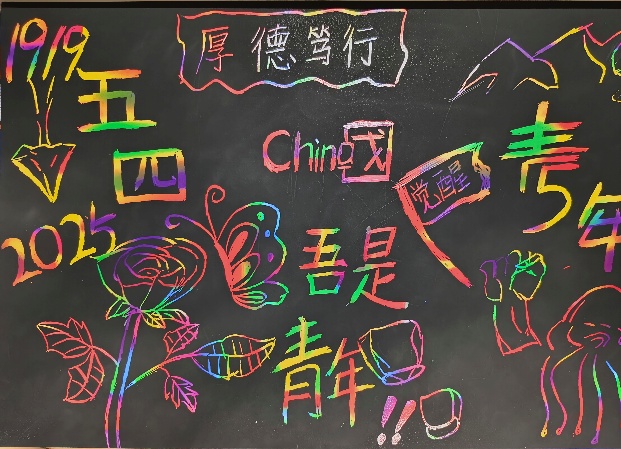 1919
厚德笃行
五
四
China 国
觉醒
青
年
2025
吾是
青年!!